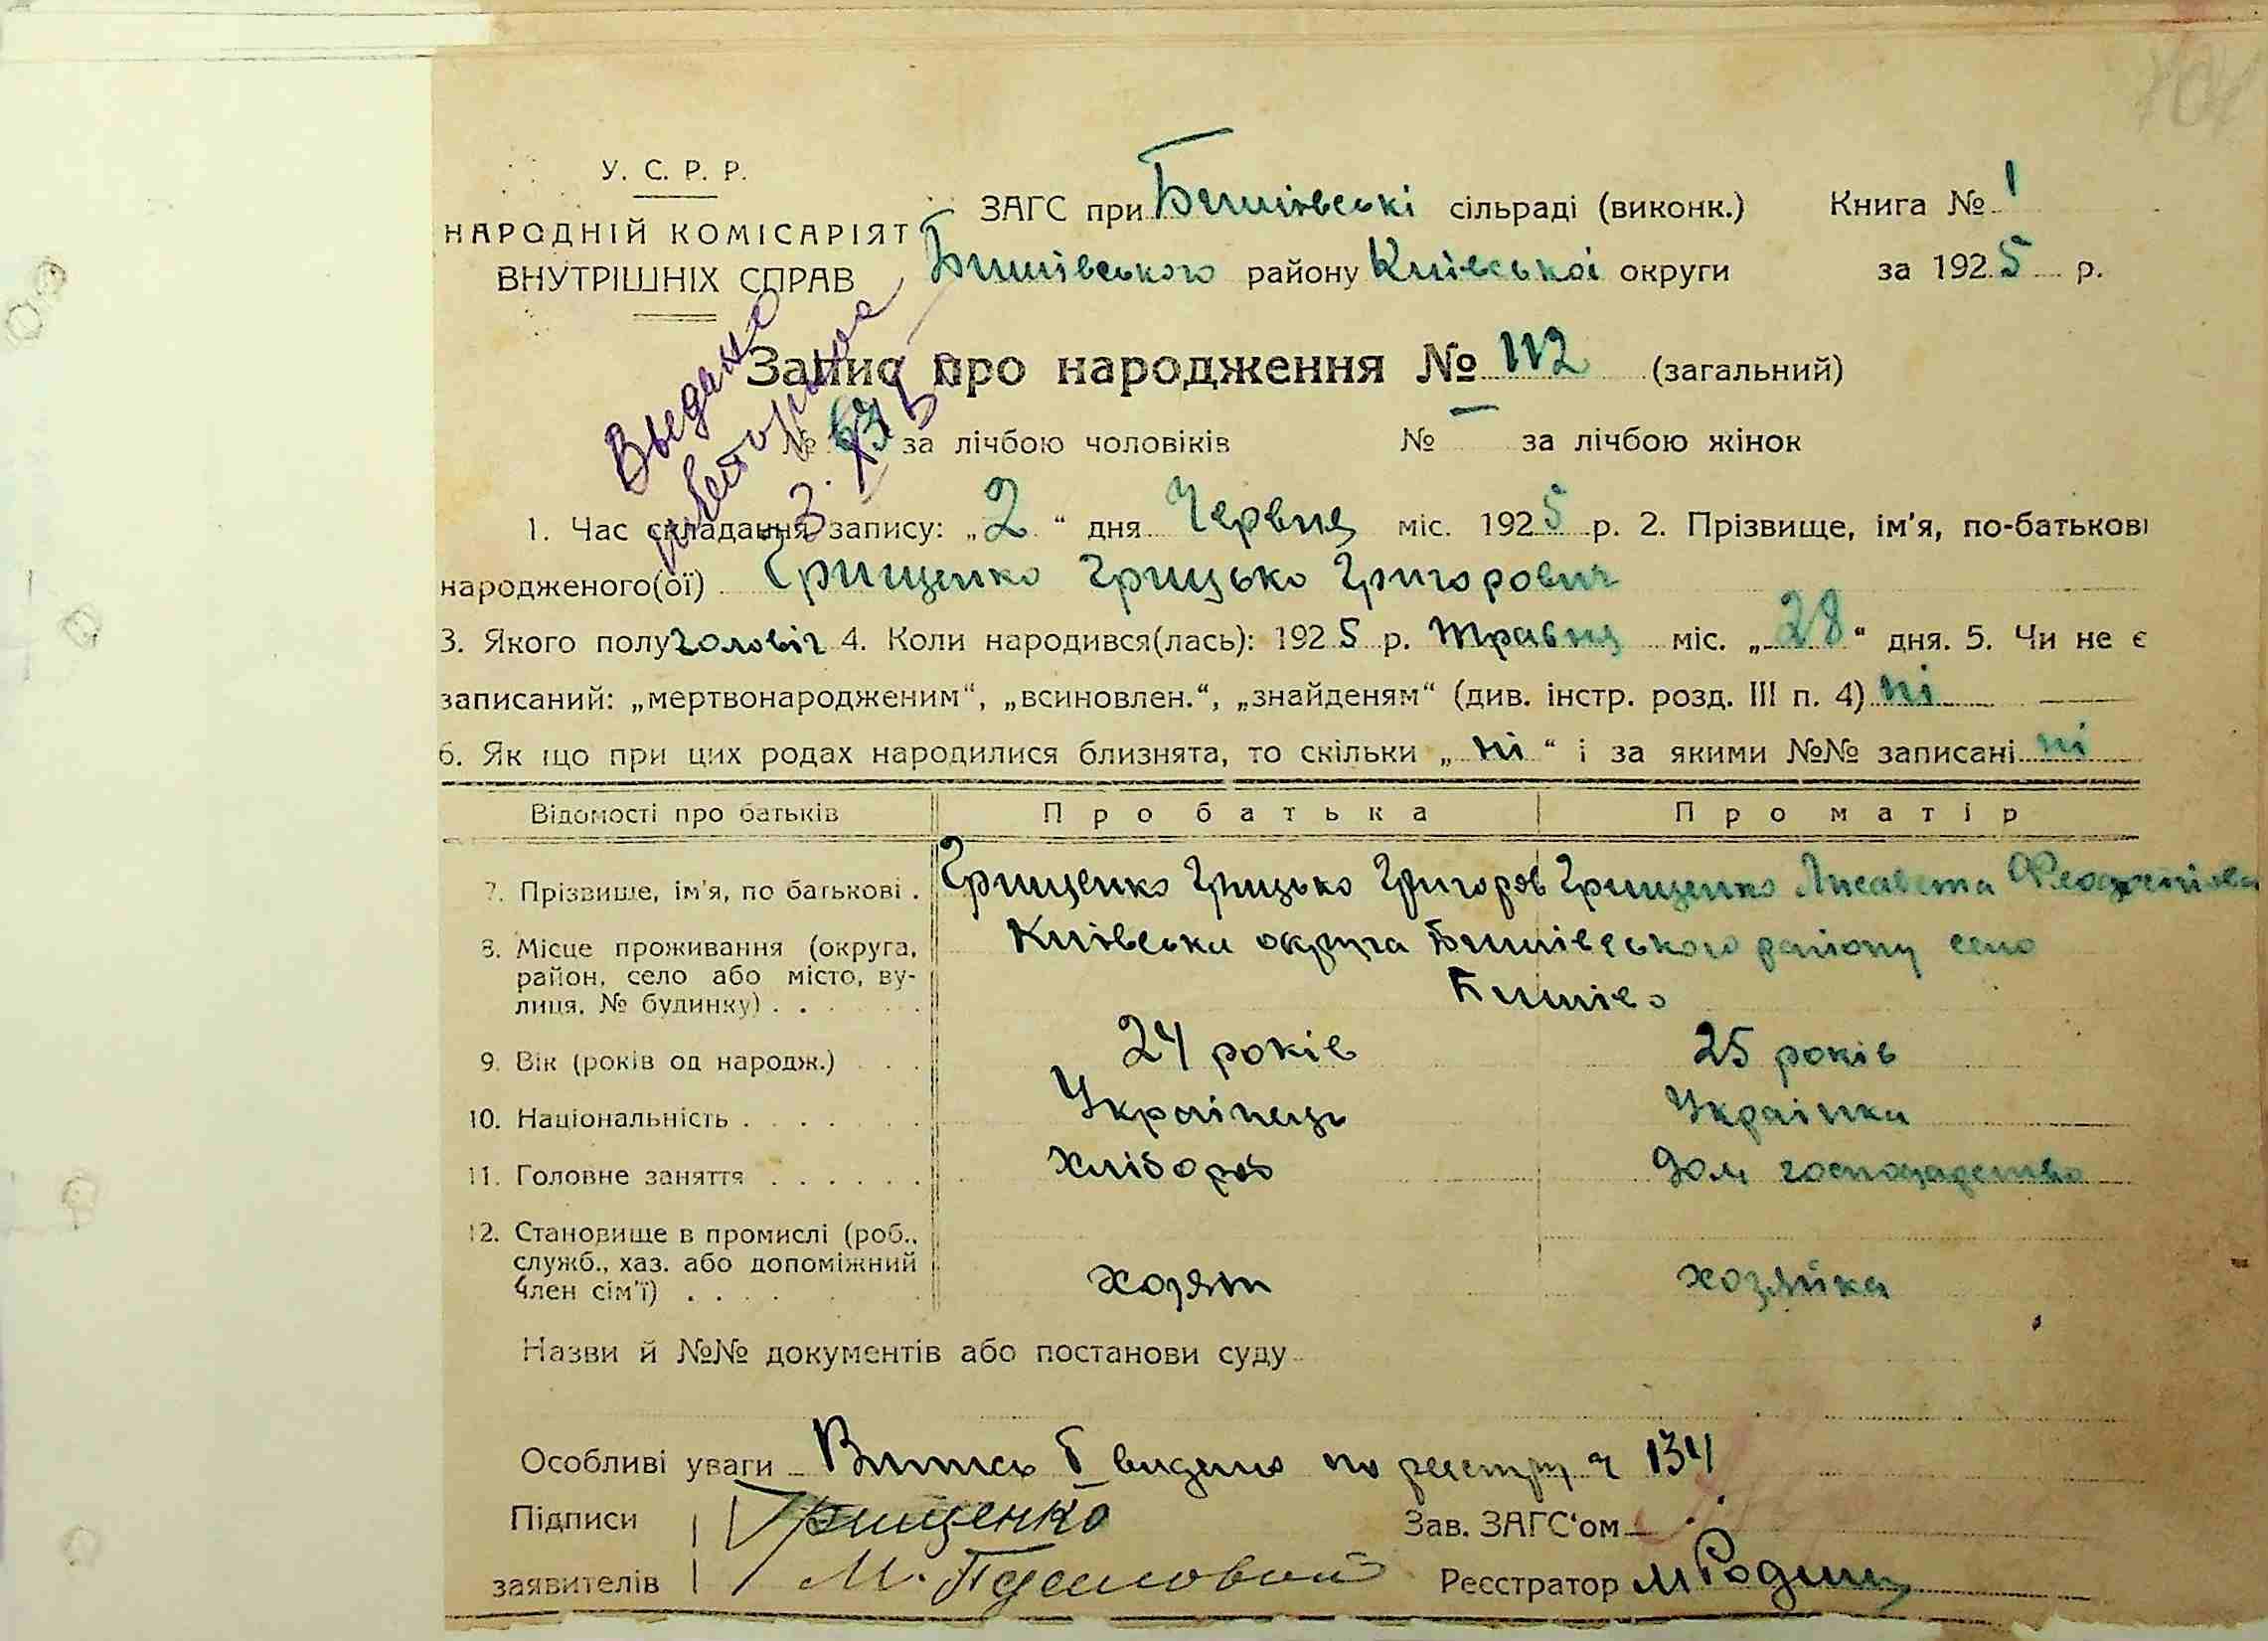 У. С. Р. Р.
НАРОДНІЙ КОМІСАРІЯТ
ВНУТРІШНІХ СПРАВ
ЗАГС при Бишівські сільраді (виконк.) Книга № 1
Бишівського району Київської округи за 1925 р.
Запис про народження № 112 (загальний)
№ 63 за лічбою чоловіків № — за лічбою жінок
Выдано
повторное
1. Час складання запису: „2“ дня Червня міс. 1925 р. 2. Прізвище, ім'я, по-батькові
народженого(ої) Грищенко Грицько Григорович
3. Якого полу чоловіч 4. Коли народився(лась): 1925 р. травня міс. „28“ дня. 5. Чи не є
записаний: „мертвонародженим“, „всиновлен.“, „знайденям“ (див. інстр. розд. III п. 4) ні
6. Як що при цих родах народилися близнята, то скільки „ні“ і за якими №№ записані ні
Відомості про батьків Про батька Про матір
7. Прізвище, ім'я, по батькові . Грищенко Грицько Григоров Грищенко Лисавета
8. Місце проживання (округа, район, село або місто, вулиця, № будинку) . . Київська округа Бишівського району село
Бишів
9. Вік (років од народж.) . . . 24 років 25 років
10. Національність . . . . . . . Українець Українка
11. Головне заняття . . . . . . Хлібороб Дом господарство
12. Становище в промислі (роб., служб., хаз. або допоміжний член сім'ї) . . . . хозяїн хозяйка
Назви й №№ документів або постанови суду
Особливі уваги Випись видано по реєстру ч 134
Підписи Грищенко Зав. ЗАГС'ом
заявителів М. Реєстратор М